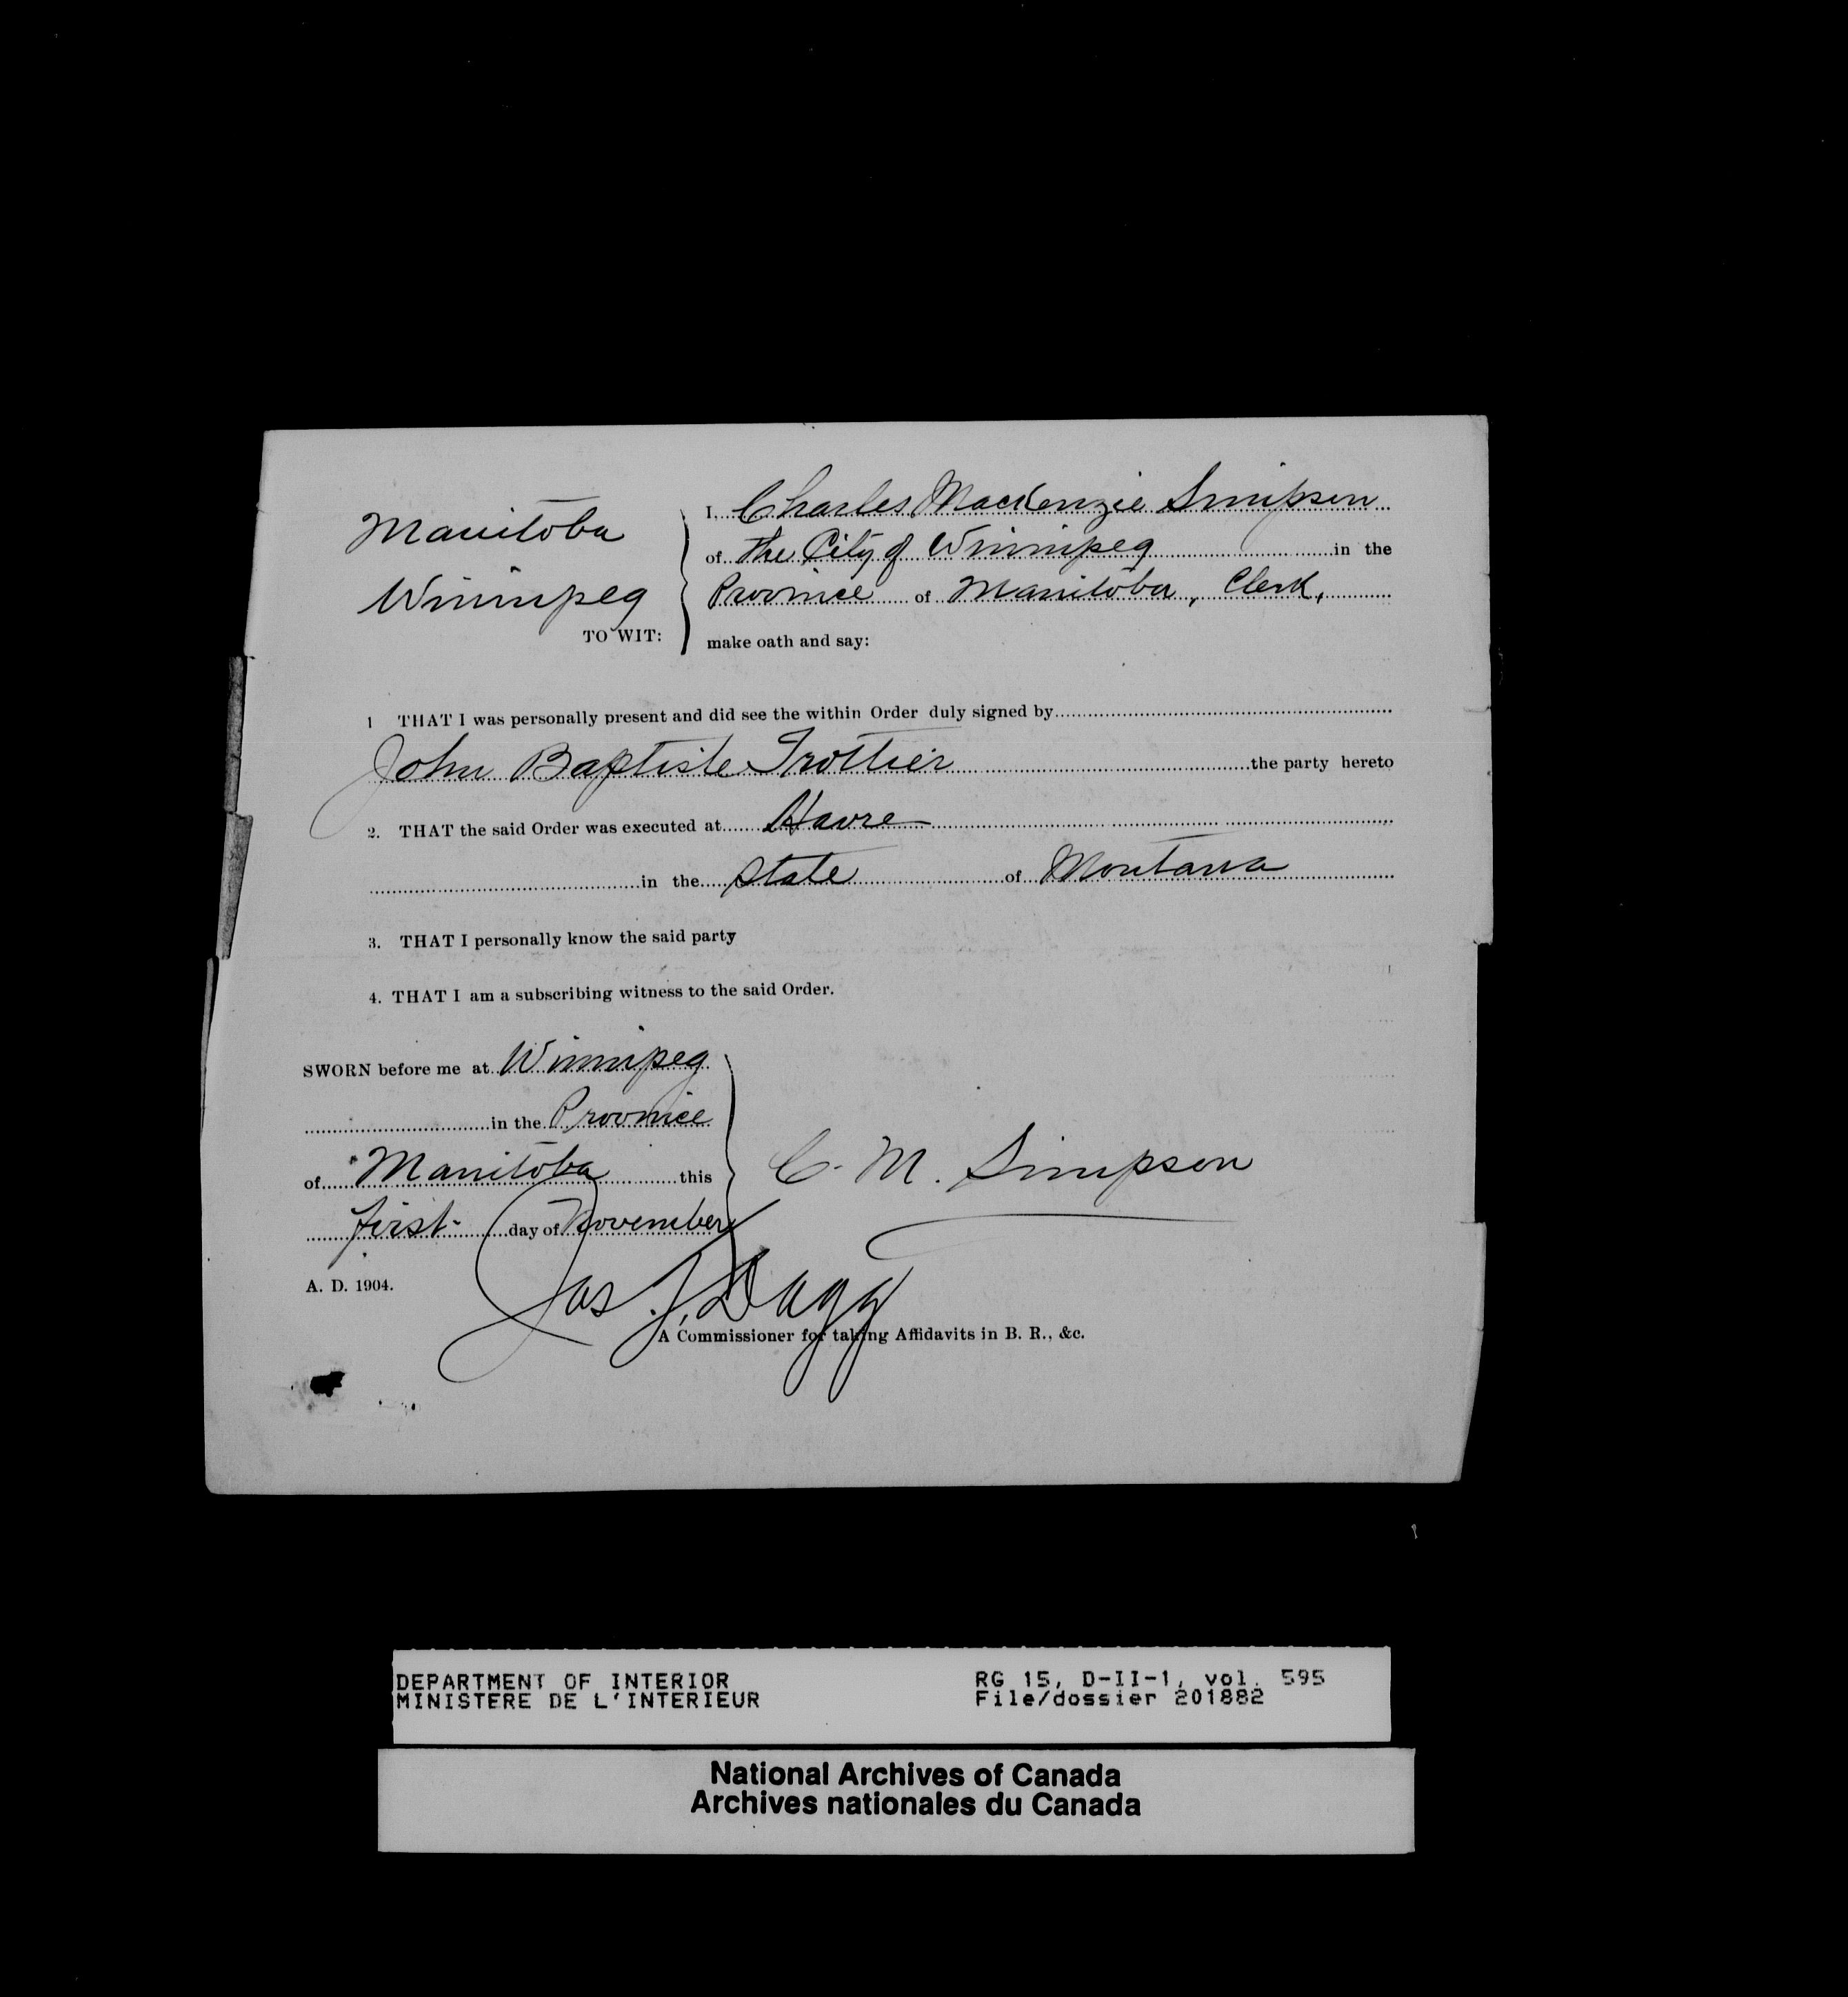 Manitoba
Winnipeg
TO WIT:
I, Charles MacKenzie Simpson
of the City of Winnipeg in the
Province of Manitoba, Clerk,
make oath and say:
1 THAT I was personally present and did see the within Order duly signed by
John Baptiste Trottier the party hereto
2. THAT the said Order was executed at Havre
in the State of Montana
3. THAT I personally know the said party
4. THAT I am a subscribing witness to the said Order.
SWORN before me at Winnipeg
in the Province
of Manitoba this
first day of November
A. D. 1904.
C. M. Simpson
Jas. J. Dagg
A Commissioner for taking Affidavits in B. R., &c.
DEPARTMENT OF INTERIOR
MINISTERE DE L'INTERIEUR
RG 15, D-II-1, vol. 595
File/dossier 201882
National Archives of Canada
Archives nationales du Canada